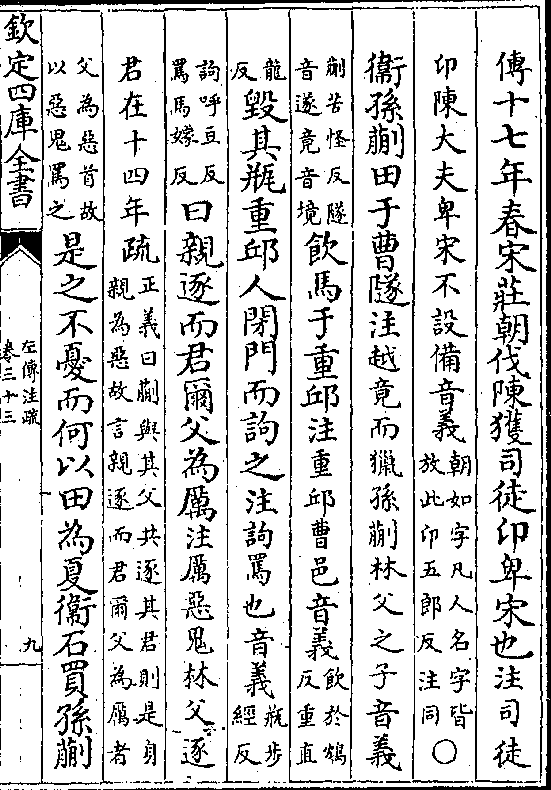 傳十七年春宋莊朝伐陳獲司徒卬卑宋也注司徒
卬陳大夫卑宋不設備音義朝如字凡人名字皆放此卬五郎反注同○
衞孫蒯田于曹隧注越竟而獵孫蒯林父之子音義
蒯苦怪反隧音遂竟音境飲馬于重邱注重邱曹邑音義飲於鴆反重直
龍反毀其瓶重邱人閉門而訽之注訽罵也音義瓶步經反
訽呼豆反罵馬嫁反曰親逐而君爾父為厲注厲惡鬼林父逐
君在十四年疏正義曰蒯與其父共逐其君則是身親為惡故言親逐而君爾父為厲者
父為惡首故以惡鬼罵之是之不憂而何以田為夏衞石買孫蒯
欽定四庫全書
左傳注疏
卷三十三
九